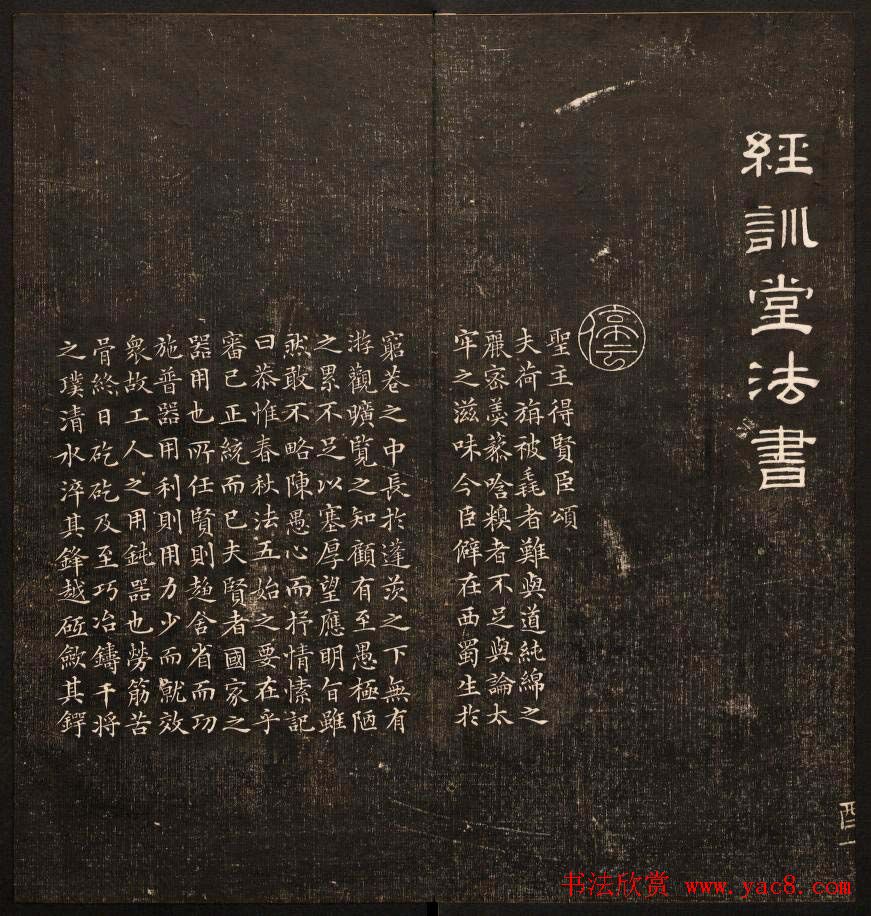 經訓堂法書
停云
聖主得賢臣頌
夫荷旃被毳者難與道純綿之
麗密羹藜唅糗者不足與論太
牢之滋味今臣僻在西蜀生於
窮巷之中長於蓬茨之下無有
游觀曠覽之知顧有至愚極陋
之累不足以塞厚望應明旨雖
然敢不略陳愚心而抒情愫記
曰恭惟春秋法五始之要在乎
審己正統而已夫賢者國家之
器用也所任賢則趨舍省而功
施普器用利則用力少而就效
衆故工人之用鈍器也勞筋苦
骨終日矻矻及至巧冶鑄干將
之璞清水淬其鋒越砥歛其鍔
酉一
书法欣赏 www.yac8.com